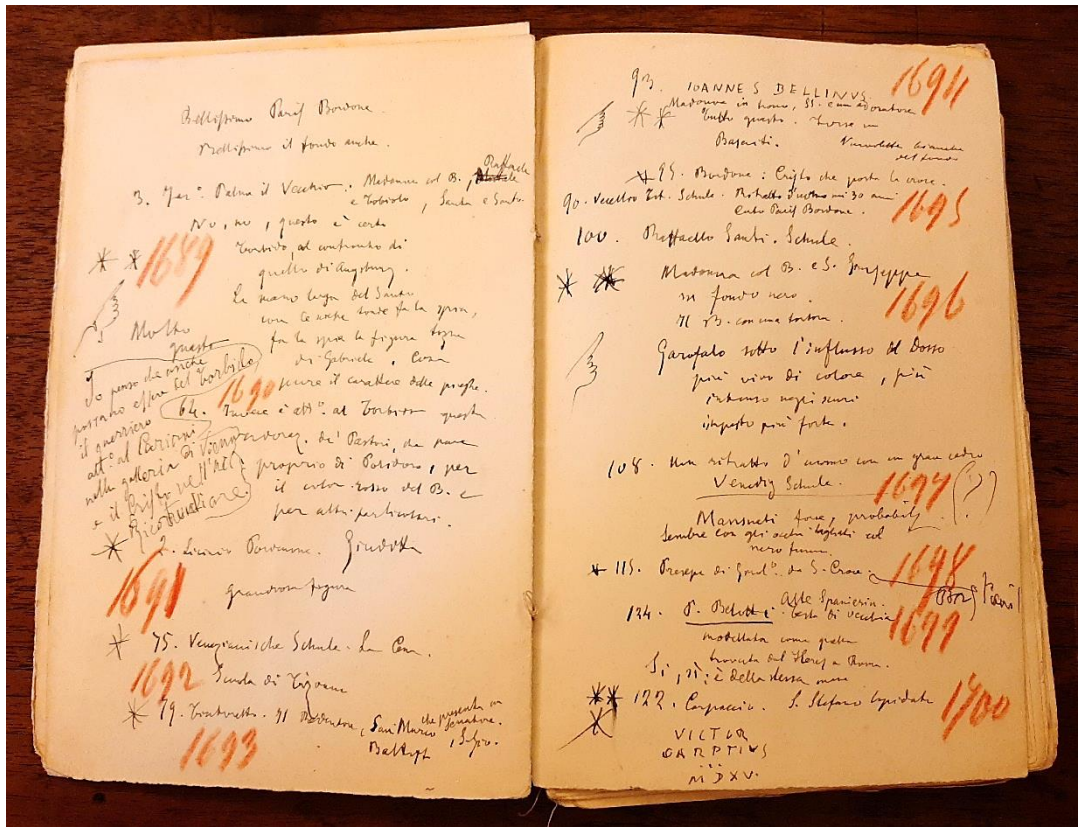 Bellissimo Paris Bordone.
Bellissimo il fondo anche.
3. Jac°. Palma il Vecchio. Madonna col B., Raffaele
e Tobiolo, Santa e Santo.
No, no, questo è certo
1689
Torbido, al confronto di
quello di Augsburg.
La mano larga del Santo
con le unghie tonde fa la spia,
Molto
questo
fa la spia la figura
di Gabriele. Cosa
sicura il carattere delle pieghe.
Io penso che anche
possano essere del Torbido
il guerriero
att° al Cariani
nella galleria di Vienna
e il Cristo nell'
Ricordatelo
1690
64. Invece è att°. al Torbido questa
de' Pastori, da
proprio di Polidoro, per
il color rosso del B. e
per altri particolari.
2. Licinio Pordenone. Giuditta
1691
grandiosa figura
75. Venezianische Schule. La Cena.
1692
Scuola di Tiziano
79. Tintoretto. Il Redentore, San Marco che presenta un
senatore,
1693
93. IOANNES BELLINVS
1694
Madonna in trono, SS. e un adoratore
Tutto questo. Forse un
Basaiti.
Nuvolette bianche
nel fondo
95. Bordone: Cristo che porta la croce.
90. Vecellio Tit. Schule. Ritratto d'uomo sui 30 anni
1695
Certo Paris Bordone.
100. Raffaello Santi. Schule.
Madonna col B. e S. Giuseppe
su fondo nero.
1696
Il B. con una tortora.
Garofalo sotto l'influsso del Dosso
più vivo di colore, più
intenso negli scuri
impasto più forte.
108. Un ritratto d'uomo con un gran cedro
Venedig Schule.
1697
(?)
Mansueti forse, probabil.
Sembra con gli occhi tagliati col
nero fumo.
115. Presepe di Girol°. da S. Croce.
1698
134. P. Bellotti. Alte Spanierin.
Testa di vecchia
1699
modellata come quella
trovata dal Herz a Roma.
Si, si, è della stessa mano
122. Carpaccio. S. Stefano lapidato
1700
VICTOR
CARPTIVS
MDXV.